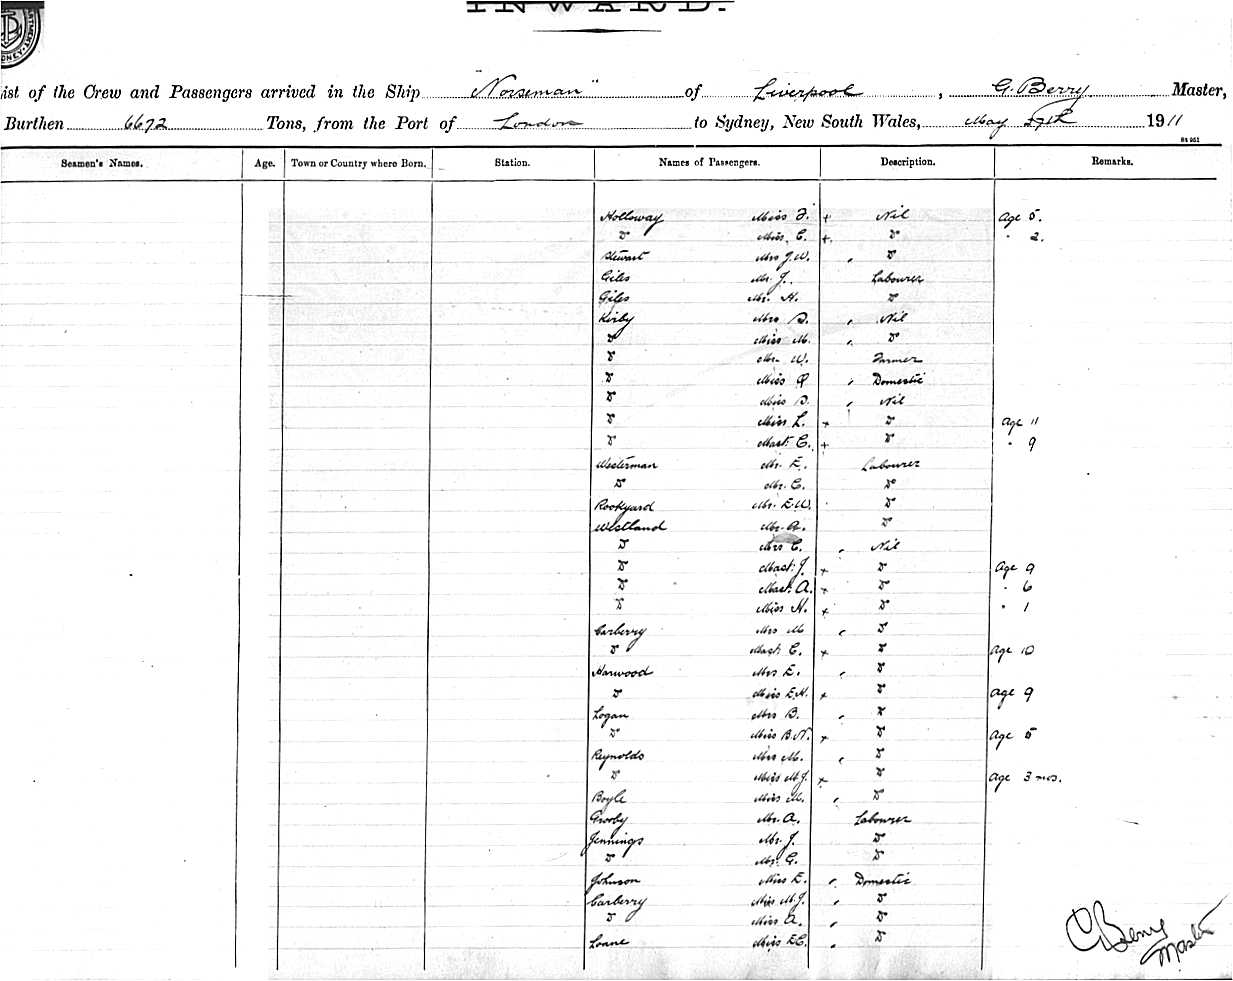 INWARD.
ist of the Crew and Passengers arrived in the Ship "Norseman" of Liverpool, G. Berry Master,
Burthen 6672 Tons, from the Port of London to Sydney, New South Wales, May 1911
Seamen's Names. Age. Town or Country where Born. Station. Names of Passengers. Description. Remarks.
Holloway Miss J. + Nil Age 5.
D Miss. C. + D " 2.
Stewart Mrs J.W. , D
Giles Mr. J. Labourer
Giles Mr. H. D
Kirby Mrs S. , Nil
D Miss M. , D
D Mr. W. Farmer
D Miss , Domestic
D Miss S. , Nil
D Miss L. + D Age 11
D Mast. C. + D " 9
Westerman Mr. E. Labourer
D Mr. C. D
Rookyard Mr. E.W. D
Westland Mr. A. D
D Mrs C. , Nil
D Mast. J. + D Age 9
D Mast. A. + D " 6
D Miss H. + D " 1
Carberry Mrs M , D
D Mast. C. + D Age 10
Harwood Mrs E. , D
D Miss E.H. + D Age 9
Logan Mrs B. , D
D Miss B.N. + D Age 5
Reynolds Mrs M. , D
D Miss M.J. + D Age 3 mos.
Boyle Miss M. , D
Grosby Mr. A. Labourer
Jennings Mr. J. D
D Mr. G. D
Johnson Miss E. , Domestic
Carberry Miss M.J. , D
D Miss A. , D
Loane Miss E.C. , D
G Berry
Master